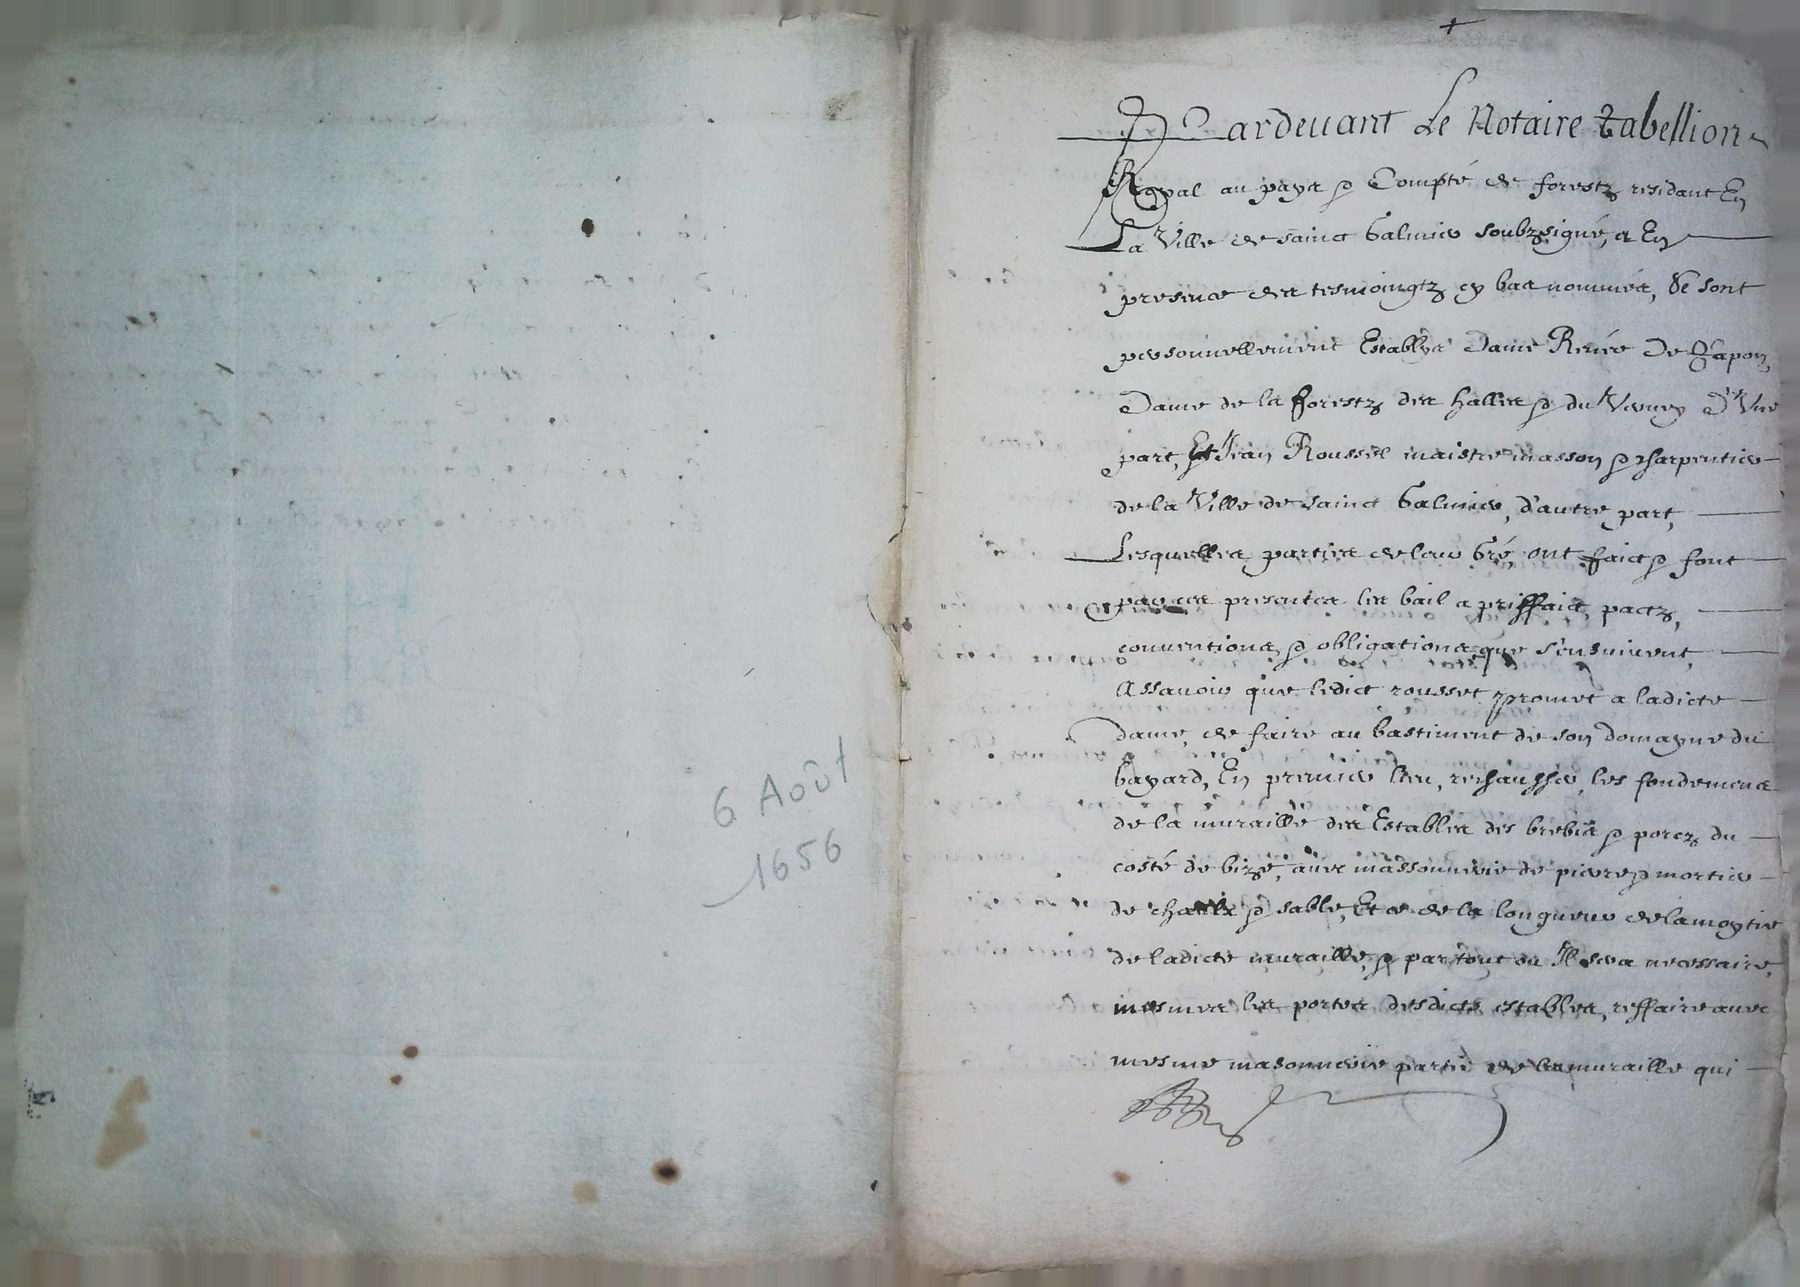 6 Août
1656
Pardeuant Le Notaire Tabellion
Royal au pays & Compté de forestz residant En
La Ville de sainct Galmier soubzsigné, et En
presence des tesmoingtz cy bas nommés, Se sont
personnellement Establys Dame Renée De
Dame de la forestz des halles & du Verney D'Vne
part, Et Jean Roussel maistre masson & charpentier
de la Ville de sainct Galmier, d'autre part,
Lesquelles parties de leur Gré, ont faict & font
par ces presentes les bail a priffaict, pactz,
conuentions & obligations que s'ensuiuent,
Assauoir que ledict rousset promet a ladicte
dame, de faire au bastiment de son domayne du
bayard, En premier lieu, rechausser, les fondements
de la muraille des Estables des brebis & porcz du
costé de bize, auec massonnerie de pierre & mortier
de chaulx & sable, Et ce de la longueur de la moytie
de ladicte muraille, & partout ou Il sera necessaire,
mesmes les portes desdictes estables, reffaire auec
mesme masonnerie partie de la muraille qui